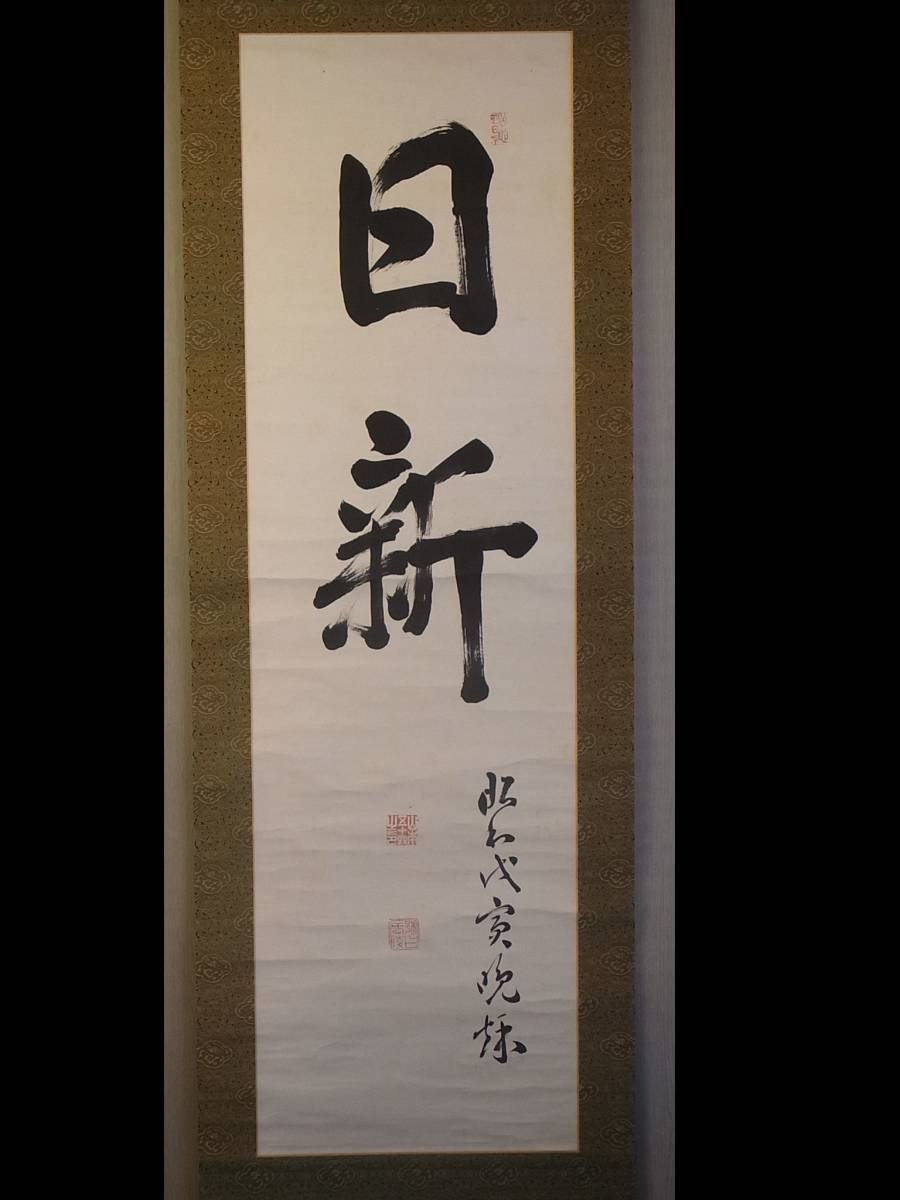 日新
昭和戊寅晩秌